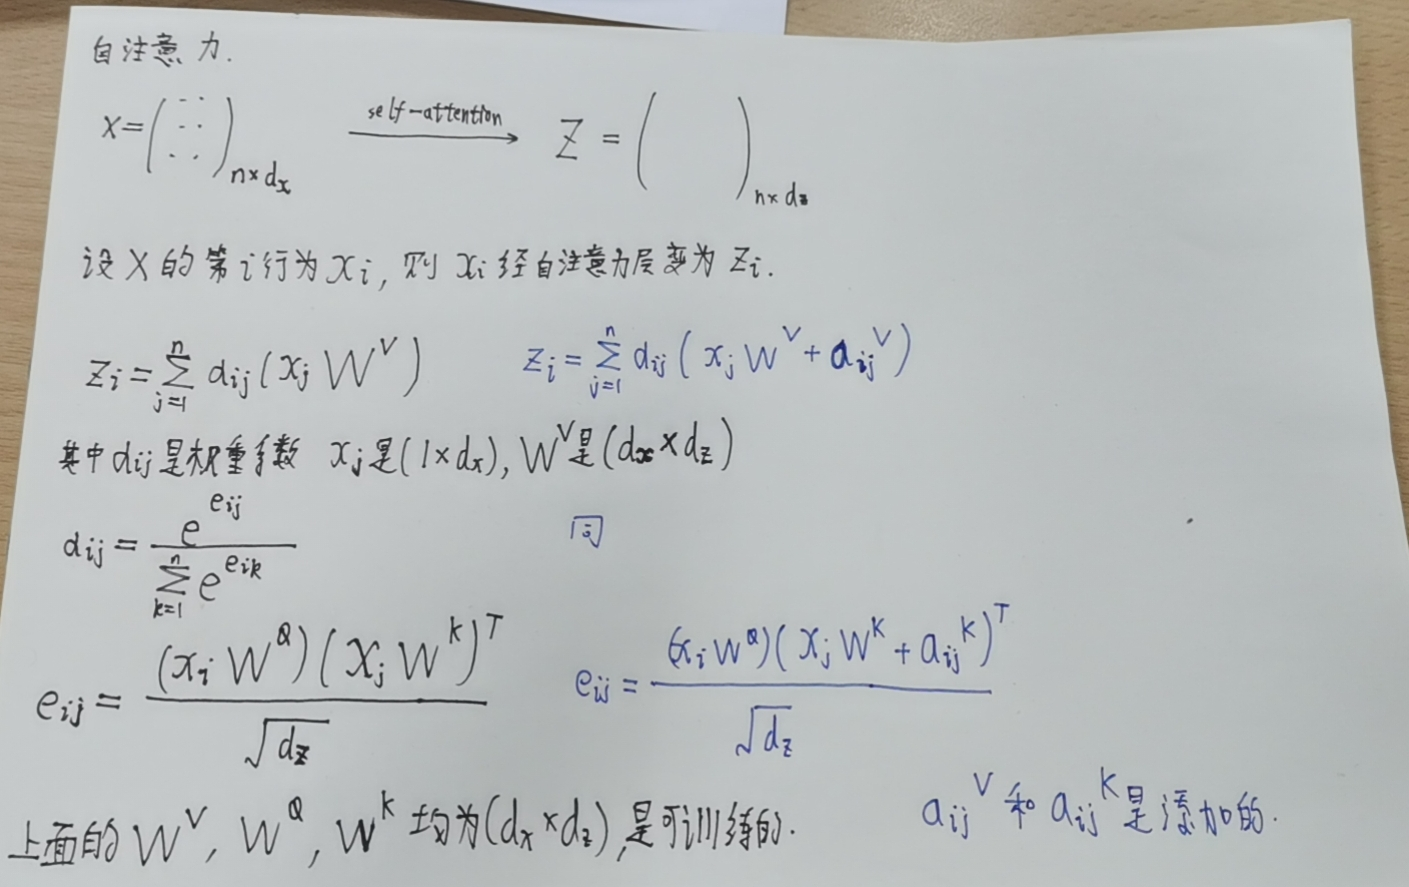 自注意力.
X=(  )n×dx self-attention Z=(  )n×dz
设X的第i行为xi,则xi经自注意力层变为zi.
zi=∑_{j=1}^{n} αij(xjW^V) zi=∑_{j=1}^{n} αij(xjW^V+aij^V)
其中αij是权重系数 xj是(1×dx),W^V是(dx×dz)
αij=e^{eij}/∑_{k=1}^{n}e^{eik} 同
eij=(xiW^Q)(xjW^K)^T/√dz eij=(xiW^Q)(xjW^K+aij^K)^T/√dz
上面的W^V,W^Q,W^K均为(dx×dz),是可训练的. aij^V和aij^K是添加的.